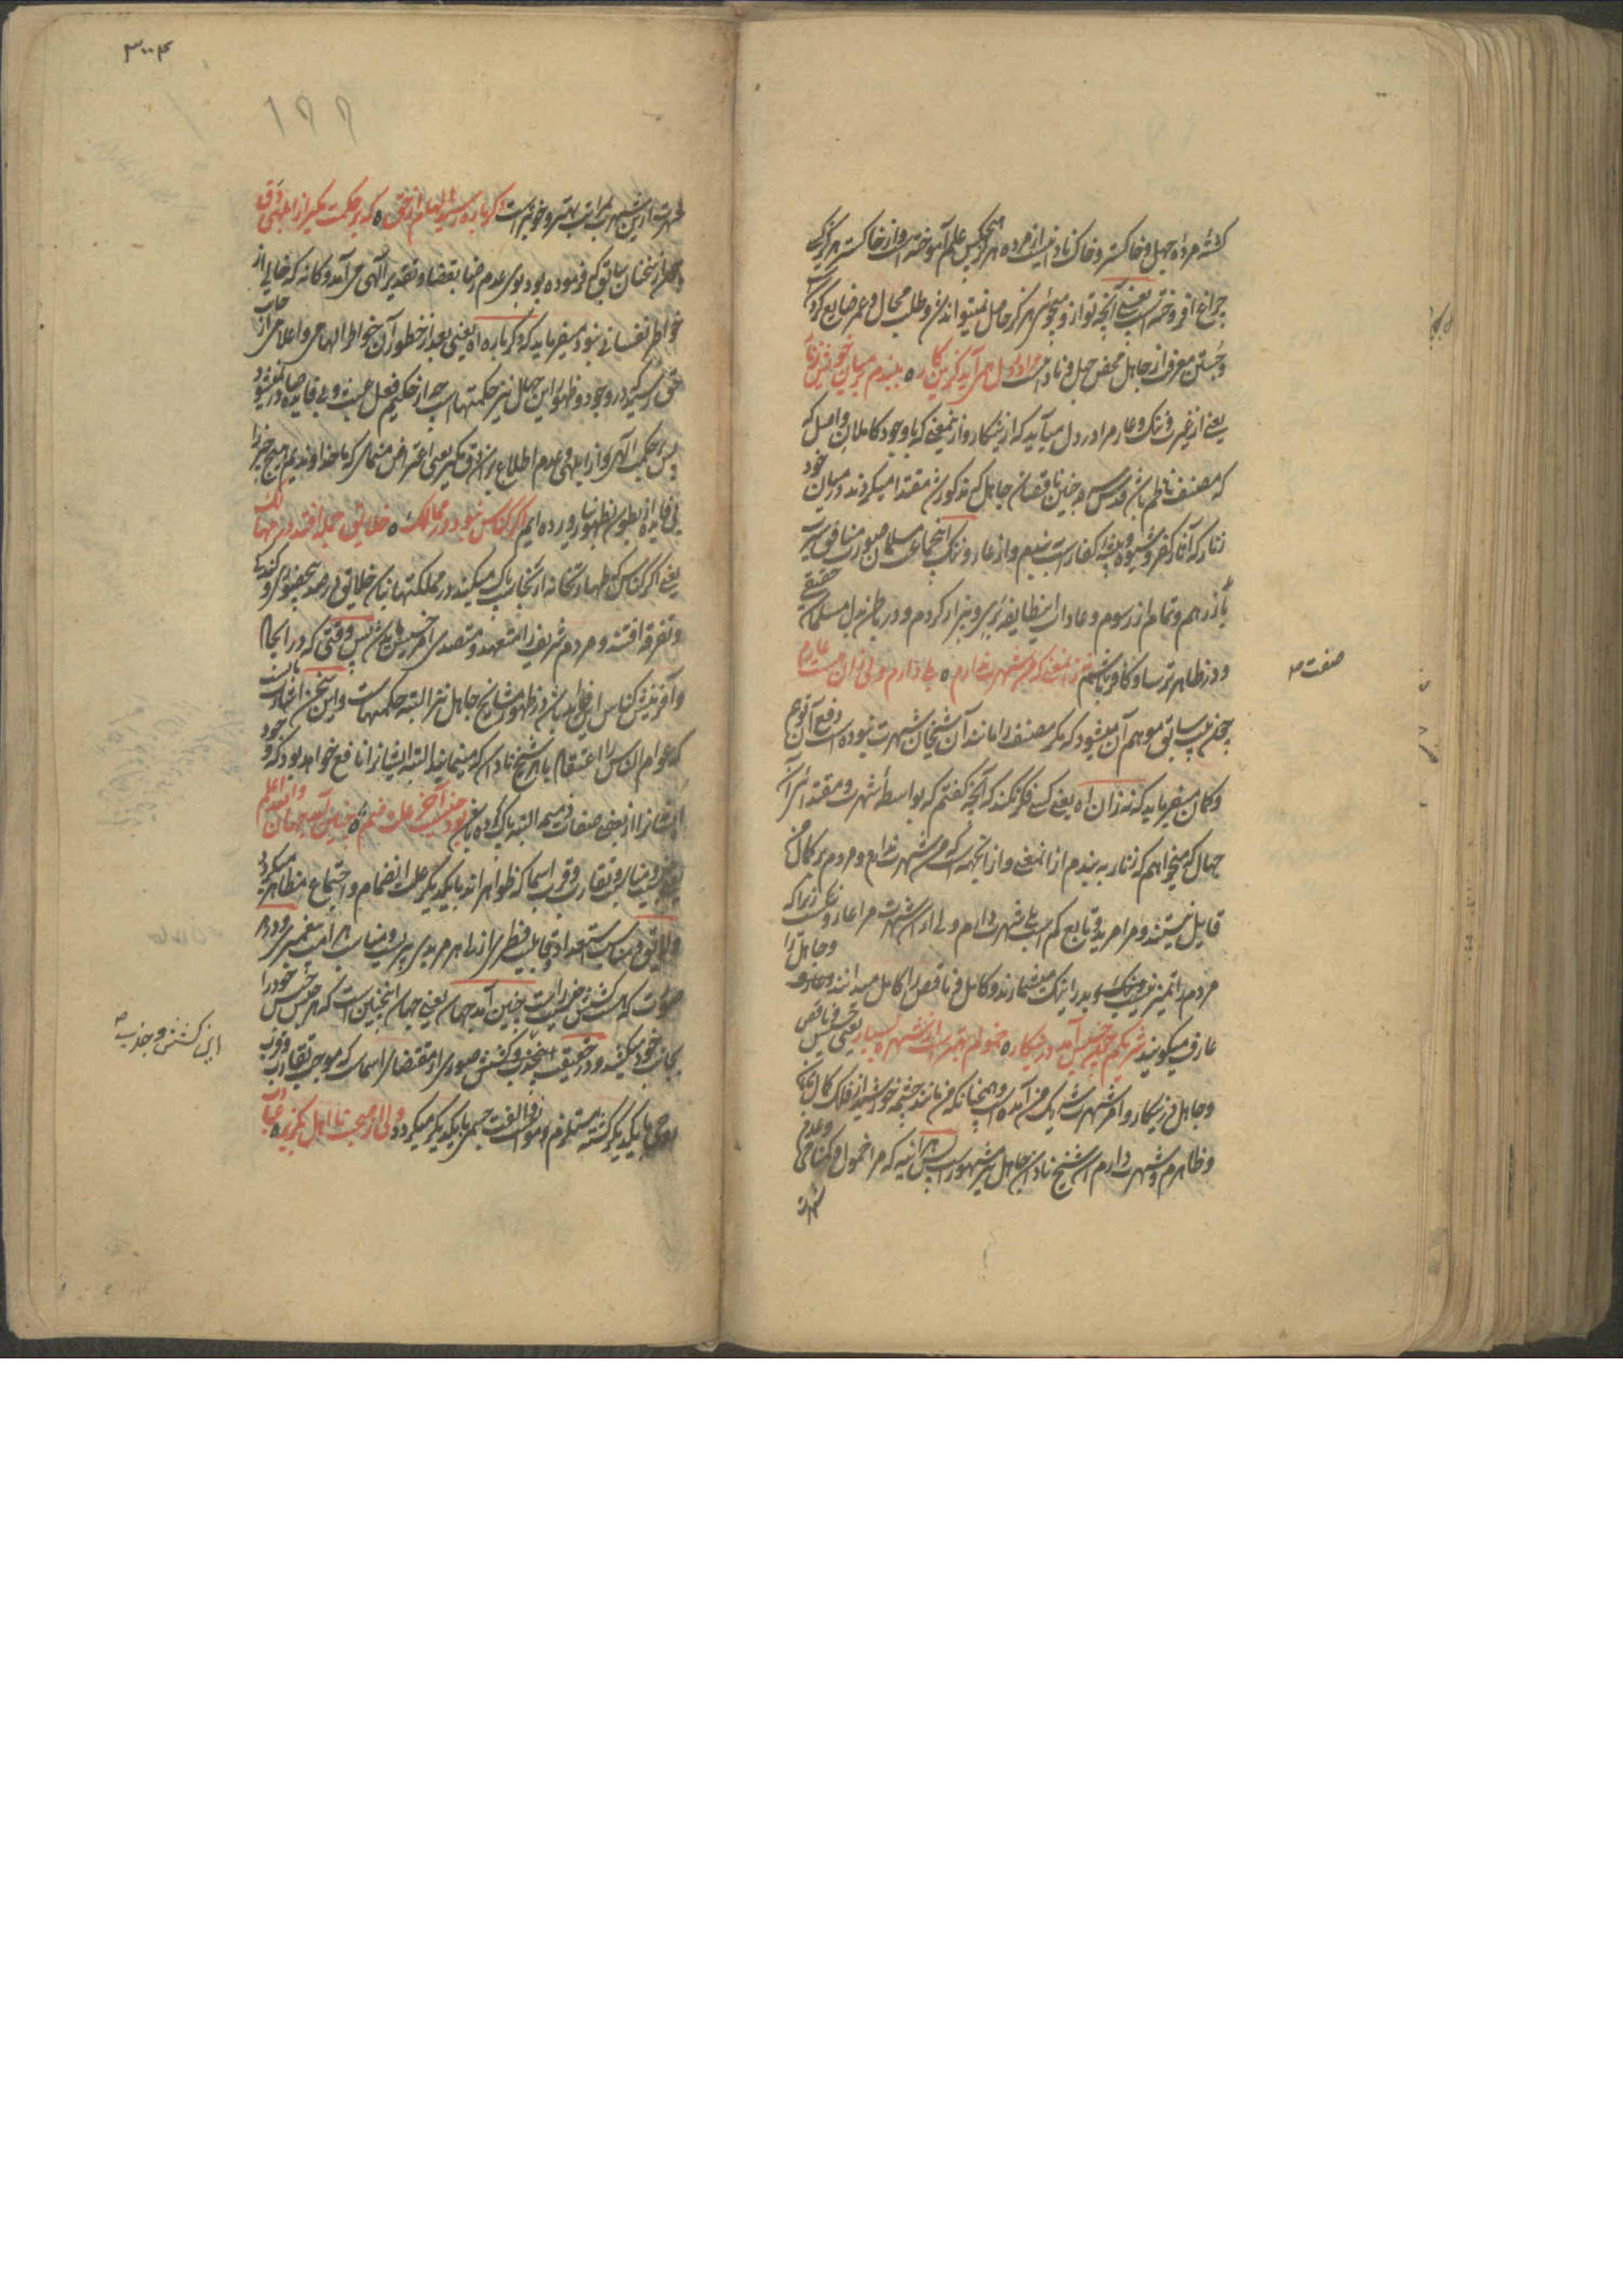 کشته مرده جهل و خاکستر و خاک نادانیست از مرده هرگز هیچکس علم آموخته است و از خاکستر هرگز کسی
چراغ افروخته است یعنی آنچه تو از و میجوئی هرگز حاصل نمیتواند شد و طلب محال و عمر ضایع کردن است
و جستن معرفت از جاهل محض جهل و نادانیست مرا در دل همی آید کزین کار ه ببندم بر میان خویش زنار
یعنی از غیرت و ننگ و عار مرا در دل میآید که ازین کار و ازین معنی که با وجود کاملان واصل که
که مصنف ناظم باشد قدس سره چنین ناقصان جاهل که مذکور شد مقتدا میگردند در میان خود
زنار که آثار کفر و شیوه و پیشه کفار است ببندم و از عار و ننگ اجتماع مسلمان صورت منافق سیرت
باز رهم و تمام از رسوم و عادات این طایفه بری و بیزار گردم و در باطن بدل مسلمان حقیقی
و در ظاهر ترسا و کافر باشم نه زان معنی که من شهرت ندارم ه بلی دارم ولی زان هست عارم
چون بیت سابق موهم آن میشود که مگر مصنف را مانند آن شیخان شهرت نبوده است دفع آن توهم
و گمان میفرماید که نه زان اه یعنی کسی فکر نکند که آنچه گفتم که بواسطه شهرت و مقتدائی آن
جهال که میخواهم که زنار ببندم از آن معنی و از آن جهت است که من شهرت ندارم و مردم بر کمال من
قایل نیستند و مرا مرید و تابع کم است بلی شهرت دارم ولی از آن شهرت مرا عار و ننگ است زیرا که
مردم را تمییز نیست و نیک و بد را نیک میشمارند و کامل و ناقص را کامل میدانند و عارف و جاهل را
عارف میگویند شریکم چون خسیس آمد درین کار ه خمولم بهتر است از شهرت بسیار یعنی چون خسیس و ناقص
و جاهل درین کار و امر شهرت شریک من آمده است و همچنانکه من مانند چشمه خورشید از فلک کمال تابان
و ظاهرم و شهرت دارم آن شیخ نادان جاهل نیز مشهور است پس هر آینه که مرا خمول و گمنامی و عدم
شهرت
صفت صـ
۳۰۰۴
۱۹۹
شهرت ازین شهرت بمراتب بهتر و خوبتر است دگرباره رسید الهام از حق ه که بر حکمت مگیر از ابلهی دق
و چون از سخنان سابق که فرموده بود بوی عدم رضا بقضا و تقدیر الهی می آمد و گمانه که خالی از
خواطر نفسانی نبود میفرماید که دگر باره اه یعنی بعد از خطور آن خواطر الهامی و اعلامی از جانب
حق رسید که در وجود و ظهور این جهال نیز حکمتهاست چه از حکیم فعل عبث و بی فایده صادر نمیشود
پس بر حکمت الهی تو از ابلهی و عدم اطلاع بر آن دق مگیر یعنی اعتراض منمای که ما خداوندیم هیچ چیز را
بی فایده از بطون بظهور نیاورده ایم اگر کناس نبود در ممالک ه خلایق جمله افتد در مهالک
یعنی اگر کناس که طهارتخانه از نجاست پاک میکند در مملکتها نباشد خلایق در صدد بیحضوری و کندگی
و تفرقه افتند و مردم شریف متعهد و متصدی امر خسیس نمیشوند پس وقتی که در ایجاد
و آفرینش کناس این فواید باشد در ظهور مشایخ جاهل نیز البته حکمتهاست و این سخن اشارتست بانست
که عوام الناس را اعتقاد با هر شیخ نادان که مینمایند البته ایشانرا نافع خواهد بود که وجود
ایشانرا از بعضی صفات ذمیمه البته پاک گرداند بود جنسیت آخر علت ضم ه چنین آمد جهان والله اعلم
یعنی جنسیت و مناسبت و تقارب و قرب اسما که ظواهر اند با یکدیگر علت انضمام و اجتماع مظاهر میگردد
و لایق و مناسب استعداد و قابلیت فطری از برای هر مریدی پیری و مناسب هر امت پیغمبری مردم
صورت که هست کشش جنسیت است چنین آمد جهان یعنی جهان این چنین است که هر جنس جنس خود را
بجانب خود میکشد و در حقیقت این جذب و کشش صوری از مقتضای اسماست که موجب تقارب و قرب
روحی با یکدیگر گشته مستلزم و موانست و الفت جسمی با یکدیگر میگردد ولی از صحبت نااهل بگریز ه عبادت
این کشش و جذب صـ